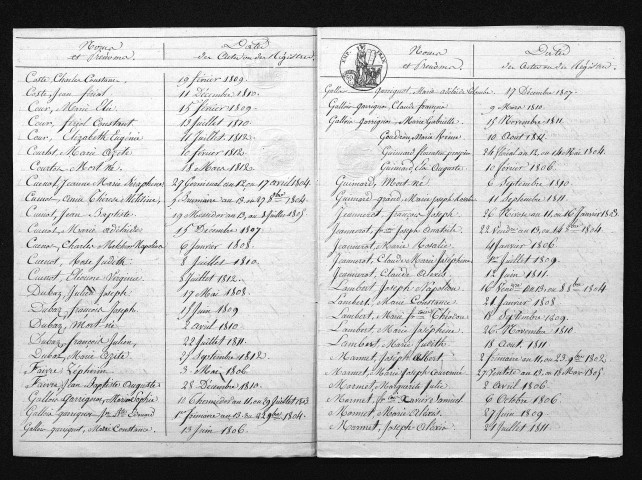 Noms et Prénoms
Dates des Actes ou des Registres
Coste, Charles Constant. 19 février 1809.
Coste, Jean férial 11 Décembre 1810.
Cour, Marie 15 février 1809.
Cour, férial Constant 13 Juillet 1810
Cour, Elizabeth Eugénie 11 Juillet 1812
Courlet, Marie 10 février 1812
Courtes Mort né 18 Mars 1812
Cuenot, Jeanne Marie Séraphine 27 Germinal an 12 ou 17 avril 1804
Cuenot, Thérèse Adeline, brumaire an 13 ou 27 8bre 1804
Cuenot, Jean Baptiste 19 Messidor an 13 ou 8 Juillet 1805
Cuenot, Marie adélaïde 15 Décembre 1807
Cuenot, Charles Melchior Napoléon 6 janvier 1808
Cuenot, Rose Judith 8 Juillet 1810.
Cuenot, Virginie 8 Juillet 1812.
Dubaz, Joseph 17 Mai 1808.
Dubaz, françois Joseph 18 Juin 1809
Dubaz, Mort né 2 avril 1810
Dubaz, françois Julien, 22 Juillet 1811.
Dubaz, Marie 27 Septembre 1812
Faivre, Zéphirin 3 Mai 1806.
Faivre, Jean Baptiste Auguste 28 Décembre 1810.
Gallois Garrignot, Marie Sophie 10 Thermidor an 11 ou 29 Juillet 1803
Gallois garrignot, Edouard 1er frimaire an 13 ou 22 9bre 1804.
Gallois garrignot, Marie Constance. 13 Juin 1806.
Noms et Prénoms
Dates des Actes ou des Registres
Gallois Garrignot, Marie 17 Décembre 1807.
Gallois garrignot, Claude françois 9 Mars 1810
Gallois garrignot, Marie Gabrielle 15 Novembre 1811
Marie 10 Août 1811
Guimard 24 floréal an 12 ou 14 Mai 1804.
Guimard Auguste 10 février 1806.
Guimard, Mort né 6 Septembre 1810
Guimard grand, Marie Joseph 11 Septembre 1811
Jeannerot, françois Joseph 26 Nivose an 11 ou 16 Janvier 1803
Jeannerot, fr. Joseph 22 Vendre an 13 ou 14 8bre 1804
Jeannerot, Marie Rosalie 4 janvier 1806.
Jeannerot, Claude Marie Joséphine 1er Juillet 1809.
Jeannerot, Claude Alexis 12 Juin 1811.
Lambert, Joseph Napoléon 16 Vendre an 13 ou 8 8bre 1804
Lambert, Marie Constance 21 janvier 1808
Lambert, Marie 18 Septembre 1809.
Lambert, Marie Joséphine 26 Novembre 1810
Lambert, Marie Judith 18 aout, 1811
Marmet, Joseph Albert 2 frimaire an 11 ou 23 9bre 1802
Marmet, Marie Joseph 27 Ventose an 13 ou 18 Mars 1805
Marmet, Marguerite Julie 2 Avril 1806
Marmet, fr. Xavier 6 Octobre 1806
Marmet, Marie Alexis 27 Juin 1809
Marmet, Joseph Alexis 21 Juillet 1811